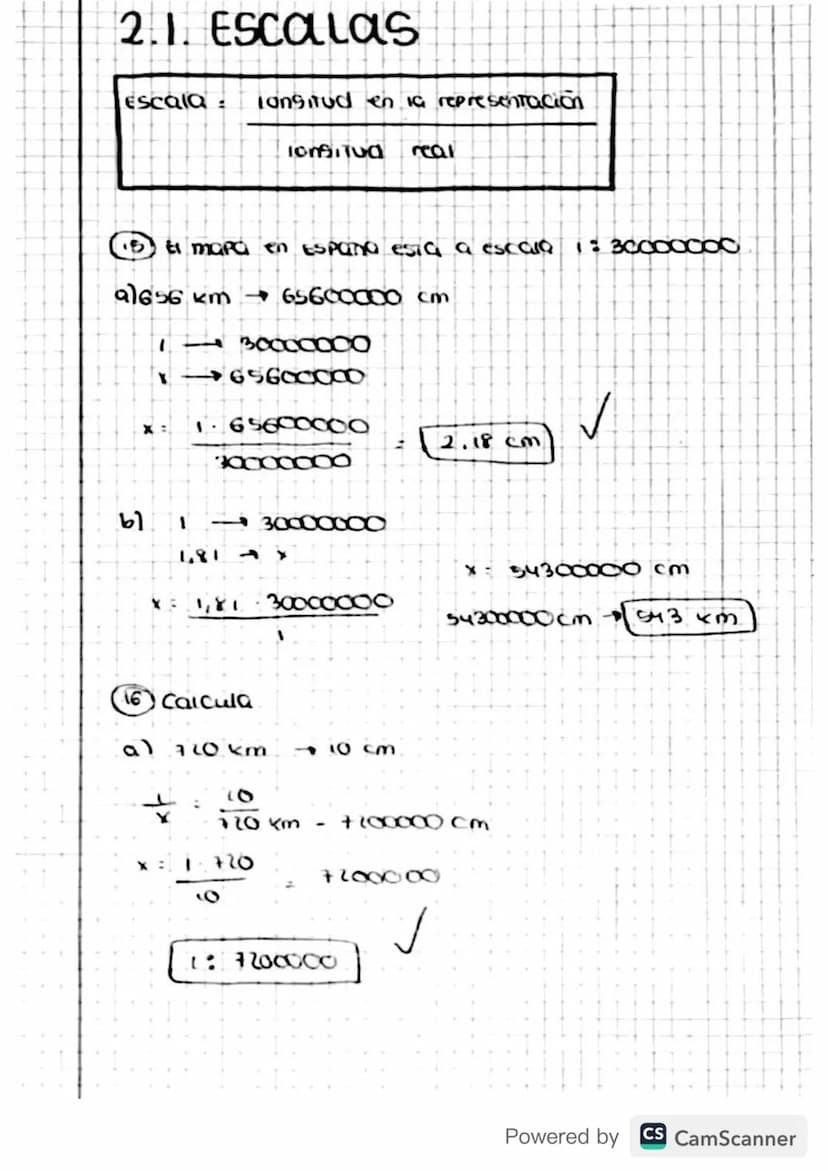 2.1. ESCALAS
Escala = longitud en la representación
longitud real
15 El mapa en España esta a escala 1 : 30000000
a) 656 km → 65600000 cm
1 → 30000000
x → 65600000
x = 1 · 65600000 = 2.18 cm ✓
30000000
b) 1 → 30000000
1,81 → x
x = 54300000 cm
x = 1,81 · 30000000
1
54300000 cm → 543 km
16 Calcula
a) 720 km → 10 cm
1/x = 10/720 km - 7200000 cm
x = 1 · 720 = 7200000
10
1 : 7200000 ✓
Powered by CS CamScanner